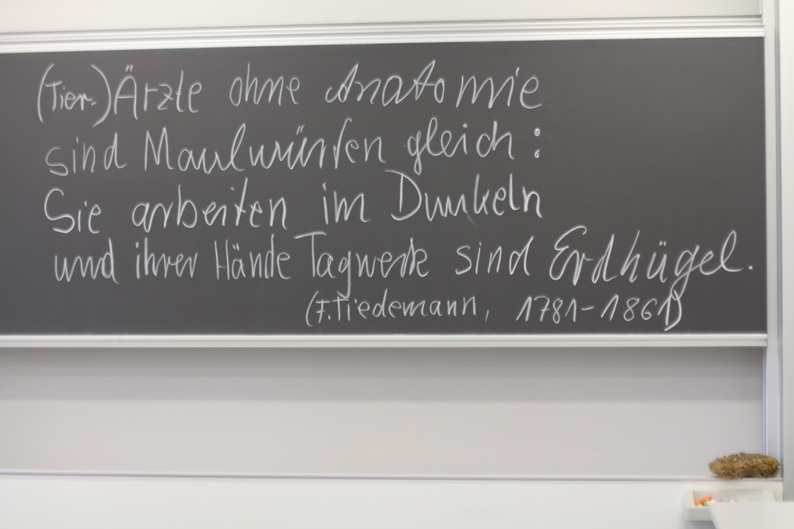 (Tier-)Ärzte ohne Anatomie
sind Maulwürfen gleich:
Sie arbeiten im Dunkeln
und ihrer Hände Tagwerk sind Erdhügel.
(F. Tiedemann, 1781-1861)